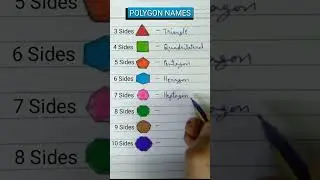 POLYGON NAMES
3 Sides - Triangle
4 Sides - Quadrilateral
5 Sides - Pentagon
6 Sides - Hexagon
7 Sides - Heptagon
8 Sides -
9 Sides -
10 Sides -
7 Sides
8 Sides